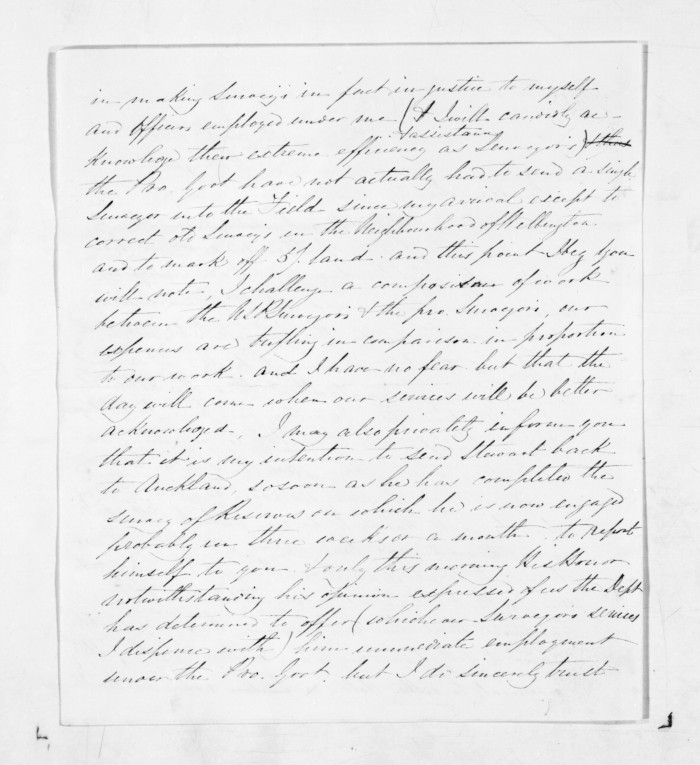 in making Surveys in fact in justice to myself
and Officers employed under me (& I will candidly ac-
knowledge their extreme efficiency as Surveyors & assistants)
the Pro. Govt have not actually had to send a single
Surveyor into the Field since my arrival except to
correct old Surveys in the Neighbourhood of Wellington
and to mark off land. and this point I beg you
will note, I challenge a comparison of work
between the Surveyors & the pro. Surveyors, our
expences are trifling in comparison in proportion
to our work. and I have no fear but that the
day will come when our services will be better
acknowleged, I may also privately inform you
that it is my intention to send Stewart back
to Auckland, so soon as he has completed the
survey of Reserves on which he is now engaged
probably in three weeks or a month. to report
himself to you. & only this morning His Honor
notwithstanding his opinion expressed of us the Dept
has determined to offer (which ever Surveyors services
I dispence with) him immediate employment
under the Pro. Govt. but I do sincerely trust